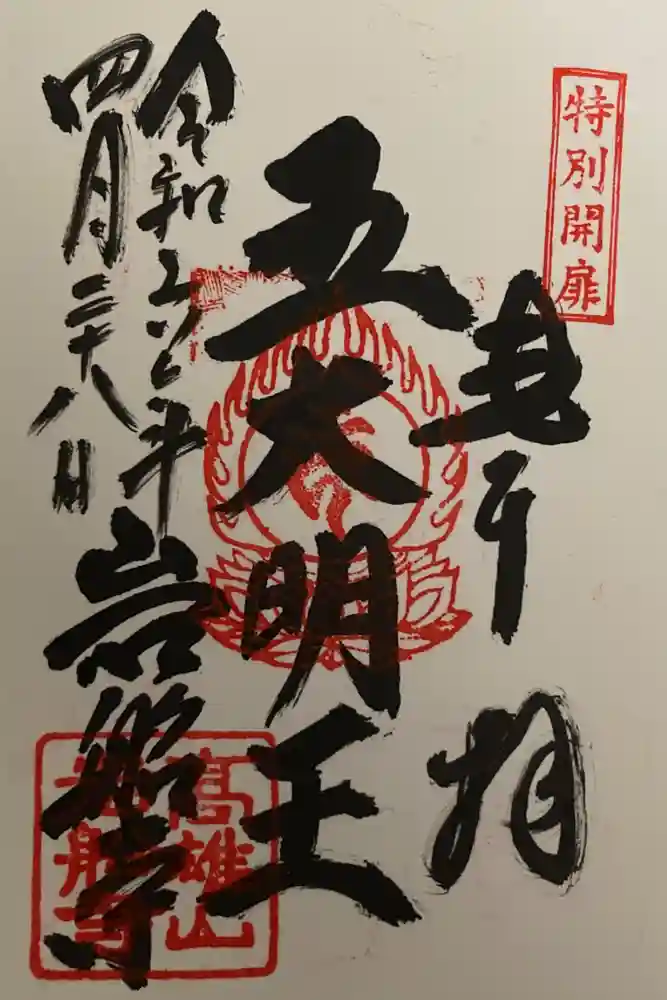 特別開扉
拝
五大明王
令和六年
四月二十八日
岩船寺
高雄山
岩船寺